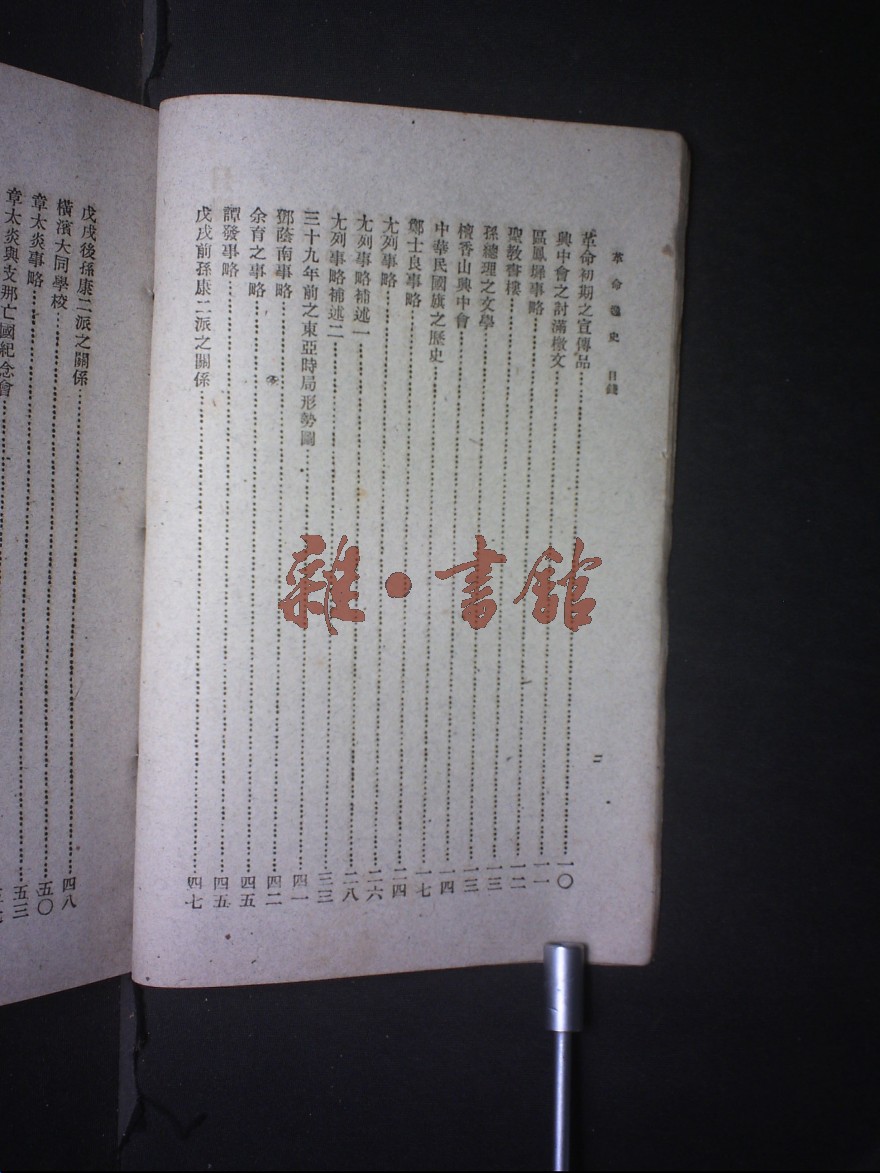 革命逸史　目錄
二
革命初期之宣傳品……一〇
興中會之討滿檄文……一一
區鳳墀事略……一二
聖教書樓……一三
孫總理之文學……一三
檀香山興中會……一四
中華民國旗之歷史……一七
鄭士良事略……二四
尢列事略……二六
尢列事略補述一……二八
尢列事略補述二……三三
三十九年前之東亞時局形勢圖……四一
鄧蔭南事略……四二
余育之事略……四五
譚發事略……四五
戊戌前孫康二派之關係……四七
戊戌後孫康二派之關係……四八
橫濱大同學校……五〇
章太炎事略……五三
章太炎與支那亡國紀念會……
雜·書館